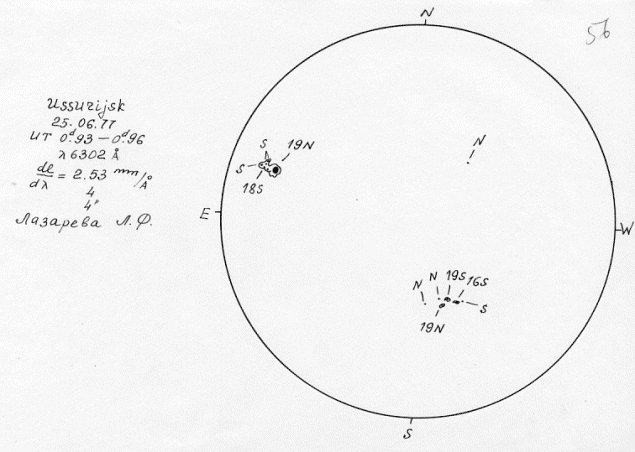 N
56
Ussurijsk
25.06.77
UT 0ᵈ93 – 0ᵈ96
λ 6302 Å
dl/dλ = 2.53 mm/Å
4
4"
Лазарева Л.Ф.
S
19N
S
18S
N
E
W
N N 19S 16S
S
19N
S